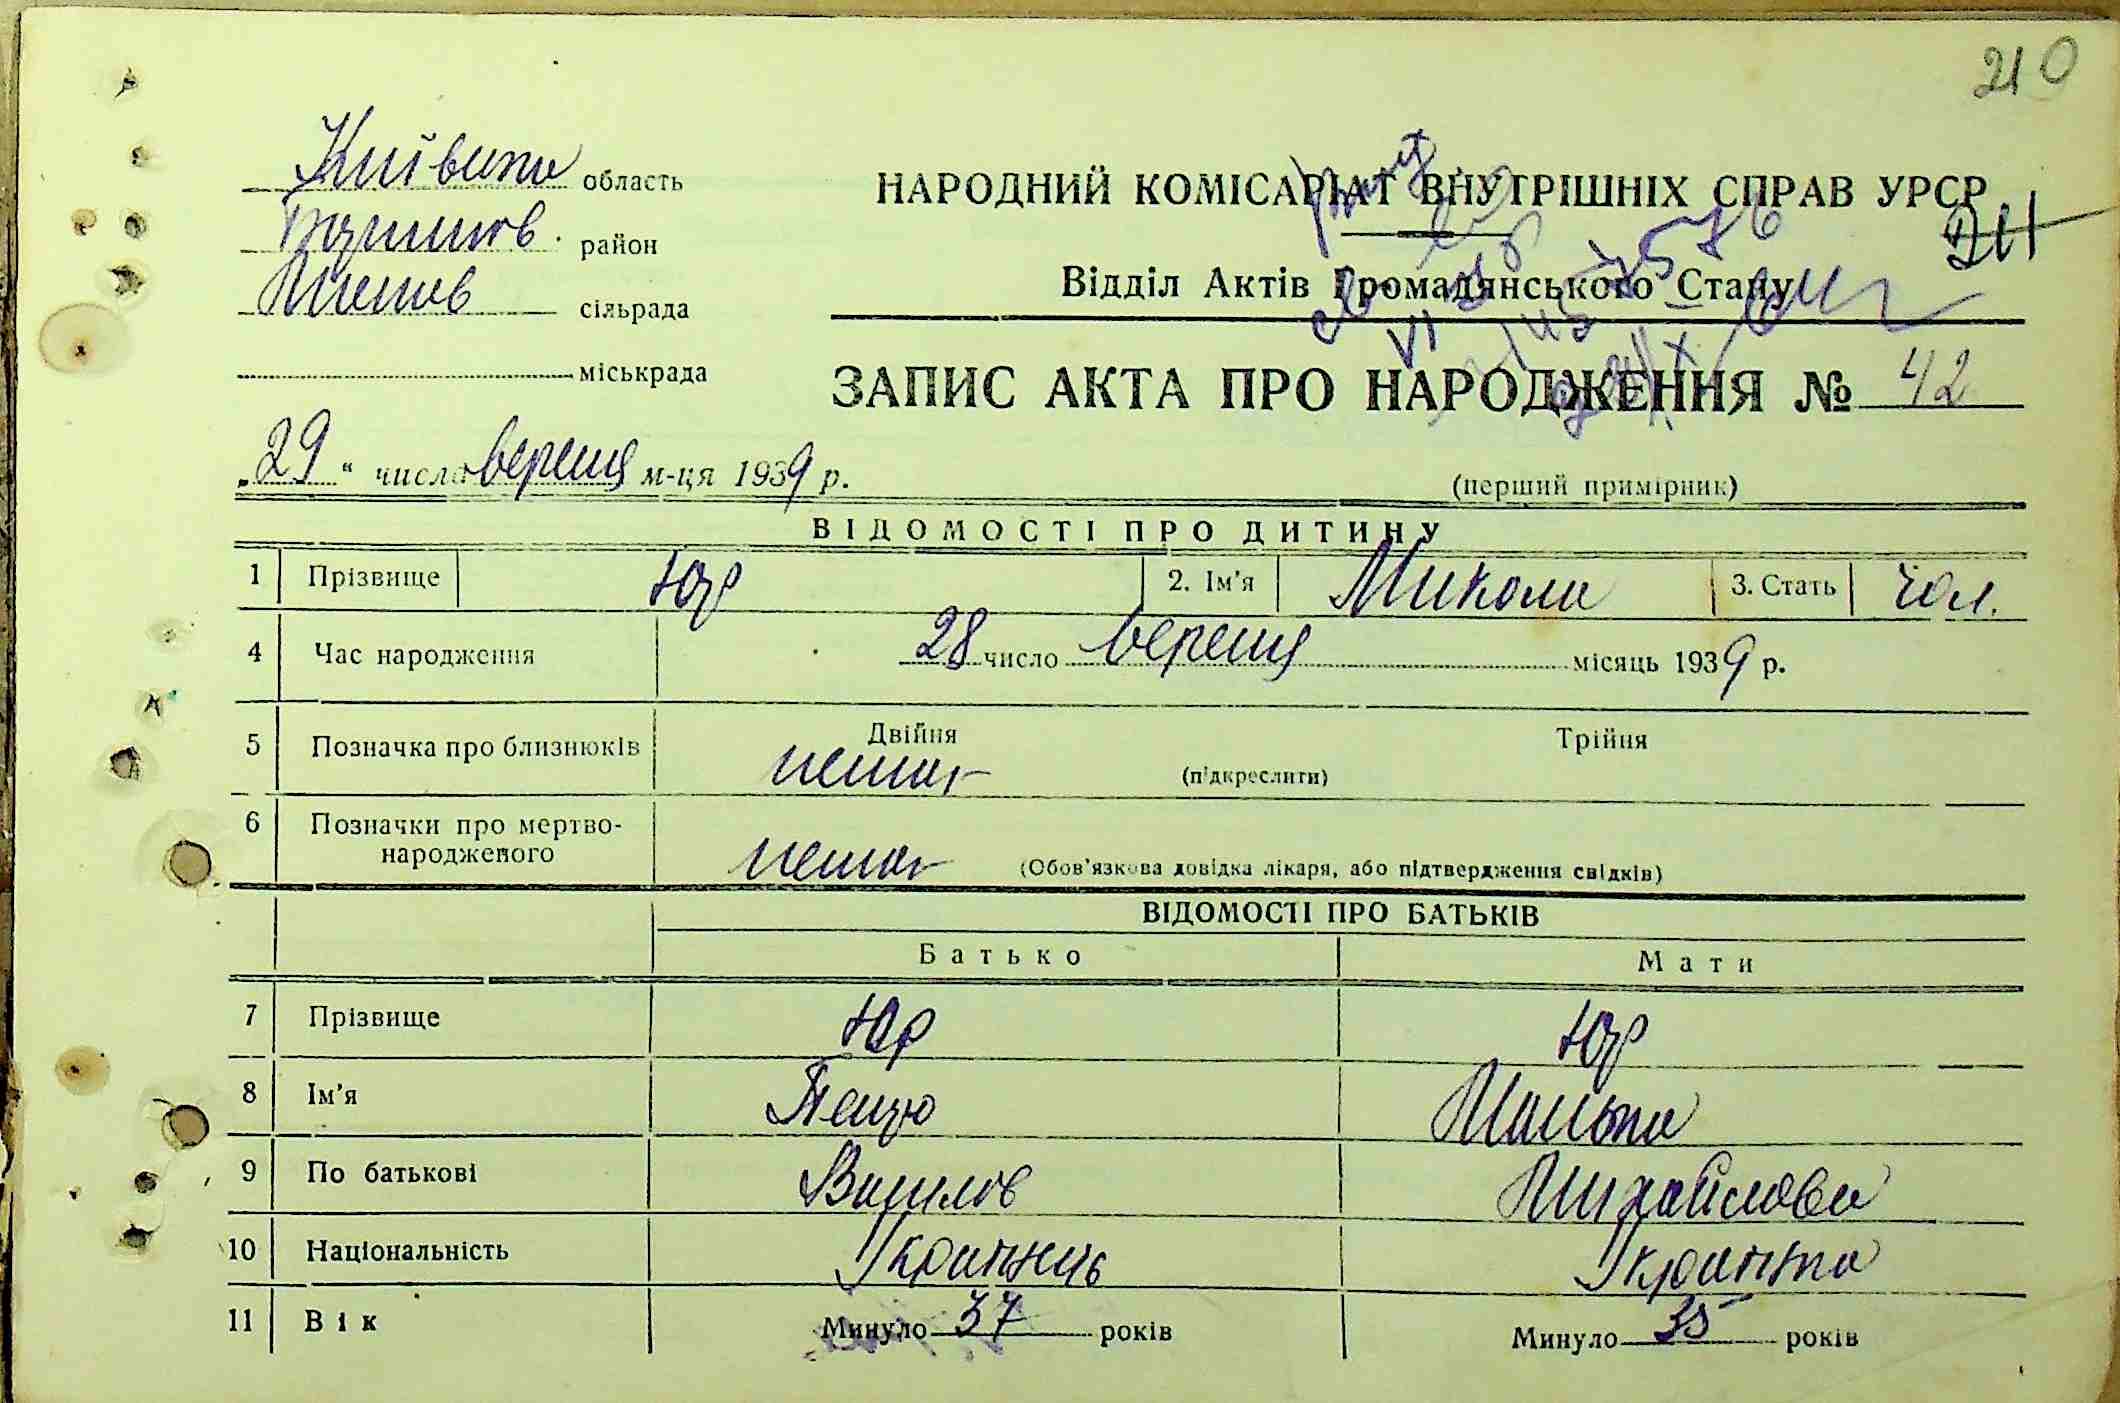 210
Київська область
район
сільрада
міськрада
НАРОДНИЙ КОМІСАРІАТ ВНУТРІШНІХ СПРАВ УРСР
Відділ Актів Громадянського Стану
ЗАПИС АКТА ПРО НАРОДЖЕННЯ № 42
„29“ числа верещ м-ця 1939 р.
(перший примірник)
ВІДОМОСТІ ПРО ДИТИНУ
1 Прізвище Юр 2. Ім'я Микола 3. Стать чол.
4 Час народження 28 число верещ місяць 1939 р.
5 Позначка про близнюків Двійня немає (підкреслити) Трійня
6 Позначки про мертво-
народженого немає (Обов'язкова довідка лікаря, або підтвердження свідків)
ВІДОМОСТІ ПРО БАТЬКІВ
Батько Мати
7 Прізвище Юр Юр
8 Ім'я
9 По батькові Василов Михайлова
10 Національність Українець Українка
11 Вік Минуло 37 років Минуло 35 років